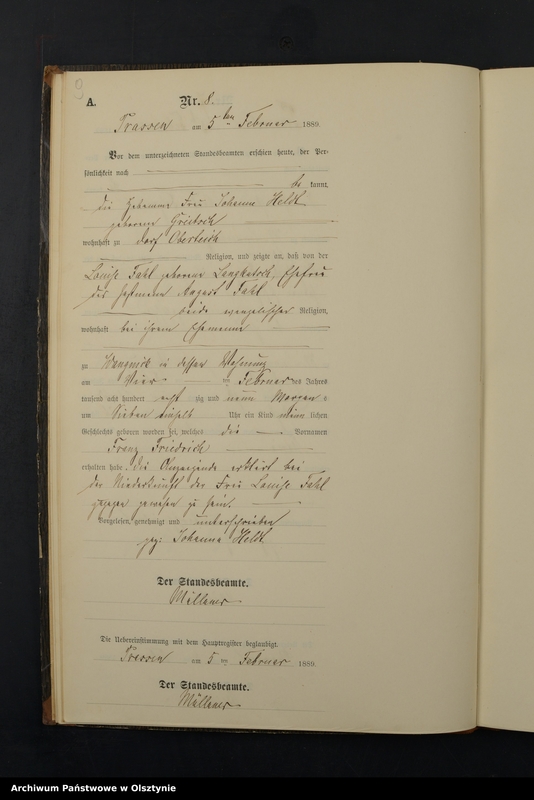 9
A.
Nr. 8.
am 5ten Februar 1889.
Vor dem unterzeichneten Standesbeamten erschien heute, der Per-
sönlichkeit nach
be kannt,
die Hebamme Frau Johanna Heldt
geborene
wohnhaft zu Dorf Oberteich
Religion, und zeigte an, daß von der
Louise Fahl geborene Langhalsch, Ehefrau
des Hofmann August Fahl
beide evangelischer Religion,
wohnhaft bei ihrem Ehemanne
zu Wangnick in dessen Wohnung
am Vier ten Februar des Jahres
tausend acht hundert acht zig und neun Morgens
um Sieben einhalb Uhr ein Kind männ lichen
Geschlechts geboren worden sei, welches die Vornamen
Franz Friedrich
erhalten habe. Die Anzeigende erklärt bei
der Niederkunft der Frau Louise Fahl
zugegen gewesen zu sein.
Vorgelesen, genehmigt und unterschrieben
gez: Johanna Heldt
Der Standesbeamte.
Die Uebereinstimmung mit dem Hauptregister beglaubigt.
am 5 ten Februar 1889.
Der Standesbeamte.
Archiwum Państwowe w Olsztynie